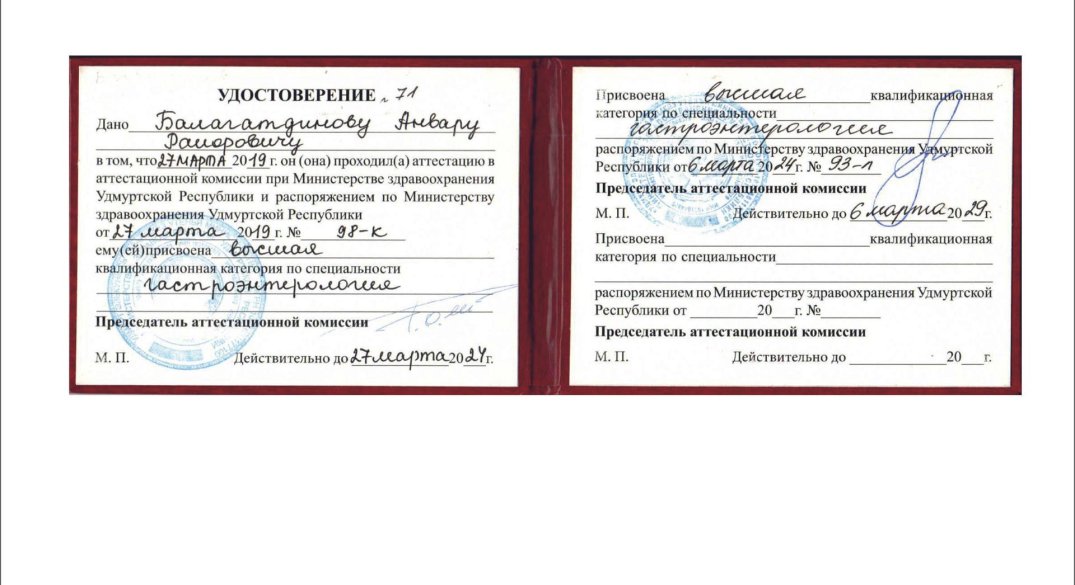 УДОСТОВЕРЕНИЕ № 71
Дано Балагатдинову Анвару
Раисовичу
в том, что 27 МАРТА 2019 г. он (она) проходил(а) аттестацию в
аттестационной комиссии при Министерстве здравоохранения
Удмуртской Республики и распоряжением по Министерству
здравоохранения Удмуртской Республики
от 27 марта 2019 г. № 98-к
ему(ей)присвоена высшая
квалификационная категория по специальности
гастроэнтерология
Председатель аттестационной комиссии
М. П. Действительно до 27 марта 2024г.
Присвоена высшая квалификационная
категория по специальности
гастроэнтерология
распоряжением по Министерству здравоохранения Удмуртской
Республики от 6 марта 2024г. № 93-л
Председатель аттестационной комиссии
М. П. Действительно до 6 марта 2029г.
Присвоена квалификационная
категория по специальности
распоряжением по Министерству здравоохранения Удмуртской
Республики от 20 г. №
Председатель аттестационной комиссии
М. П. Действительно до 20 г.